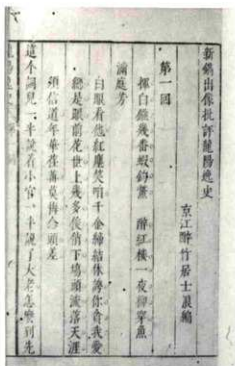 新鐫出像批評龍陽逸史
京江醉竹居士浪編
第一回
揮白鏹幾番蝦釣鱉 醉紅樓一夜柳穿魚
滿庭芳
白眼看他紅塵笑咱千金締結休誇你貪我愛
總是眼前花世上幾多俊俏下塲頭流落天涯
須信道年華荏苒莫悔念頭差
這個詞兒一半說着小官一半說了大老怎麽到先